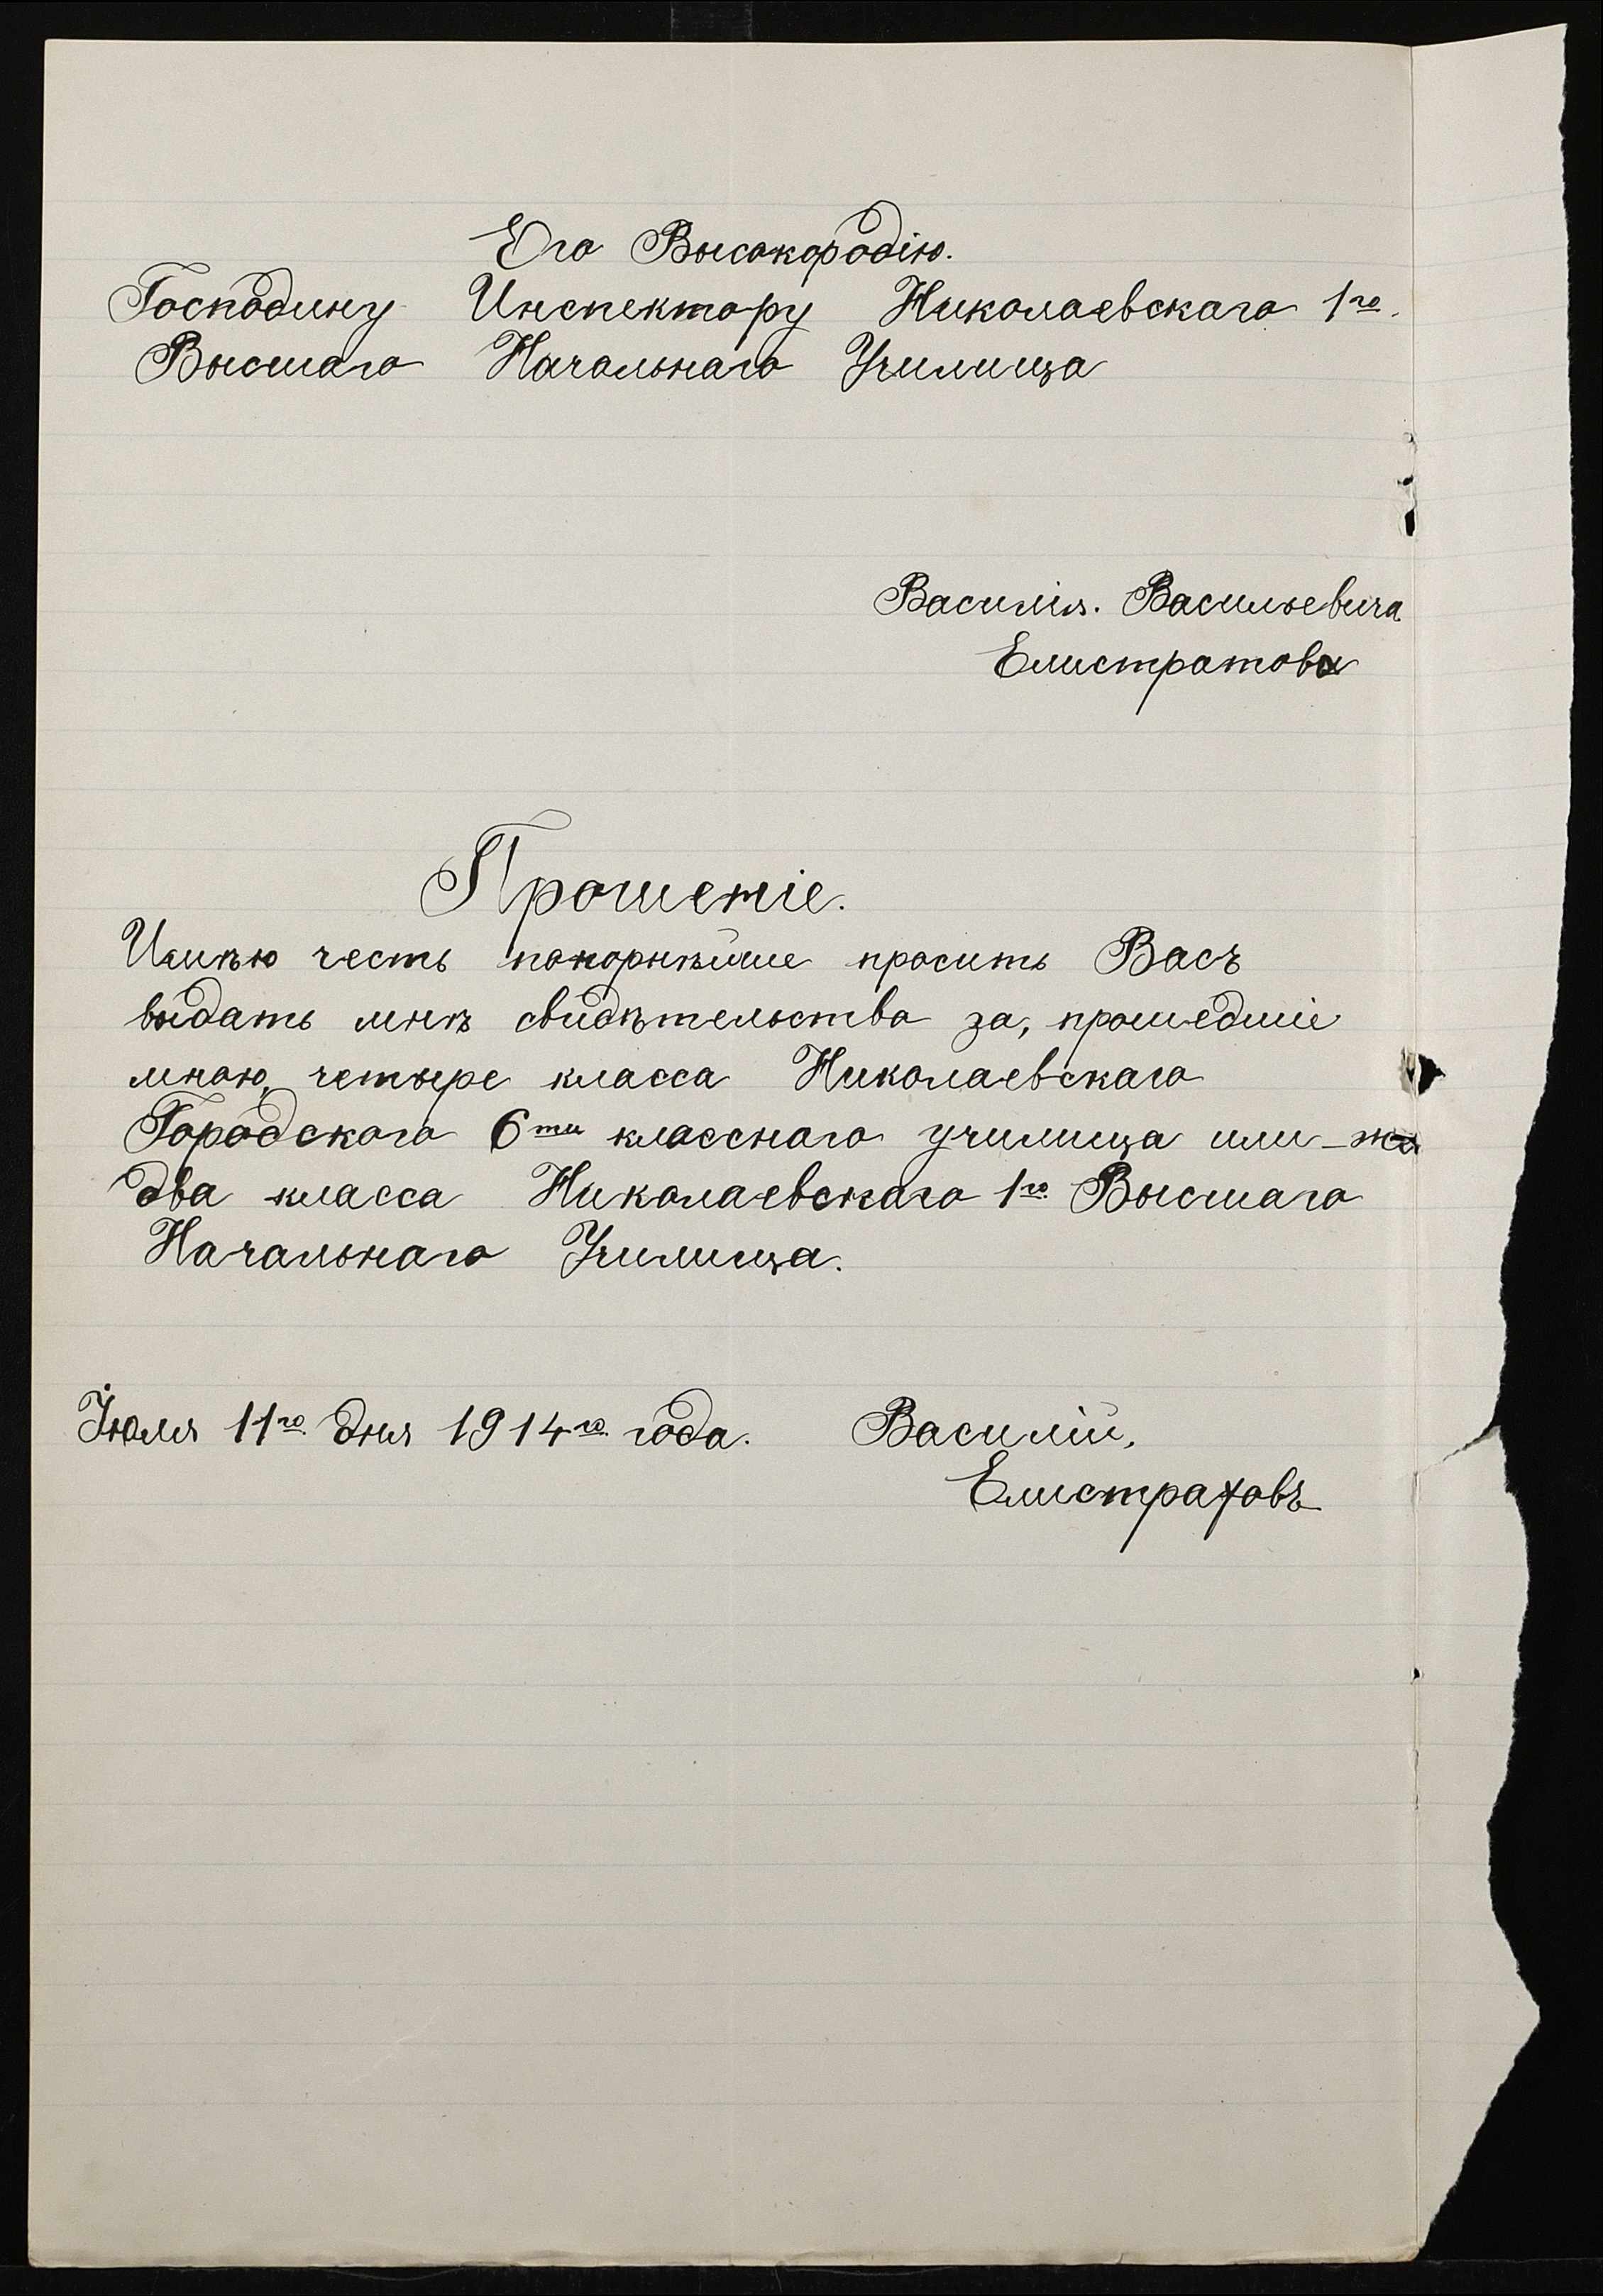 Его Высокородію.
Господину Инспектору Николаевскаго 1го.
Высшаго Начальнаго Училища
Василія. Васильевича
Елистратова
Прошеніе.
Имѣю честь покорнѣйше просить Васъ
выдать мнѣ свидѣтельство за, прошедшіе
мною, четыре класса Николаевскаго
Городского 6ти класснаго училища или-же
два класса Николаевскаго 1го Высшаго
Начальнаго Училища.
Іюля 11го дня 1914го года. Василій,
Елистратовъ